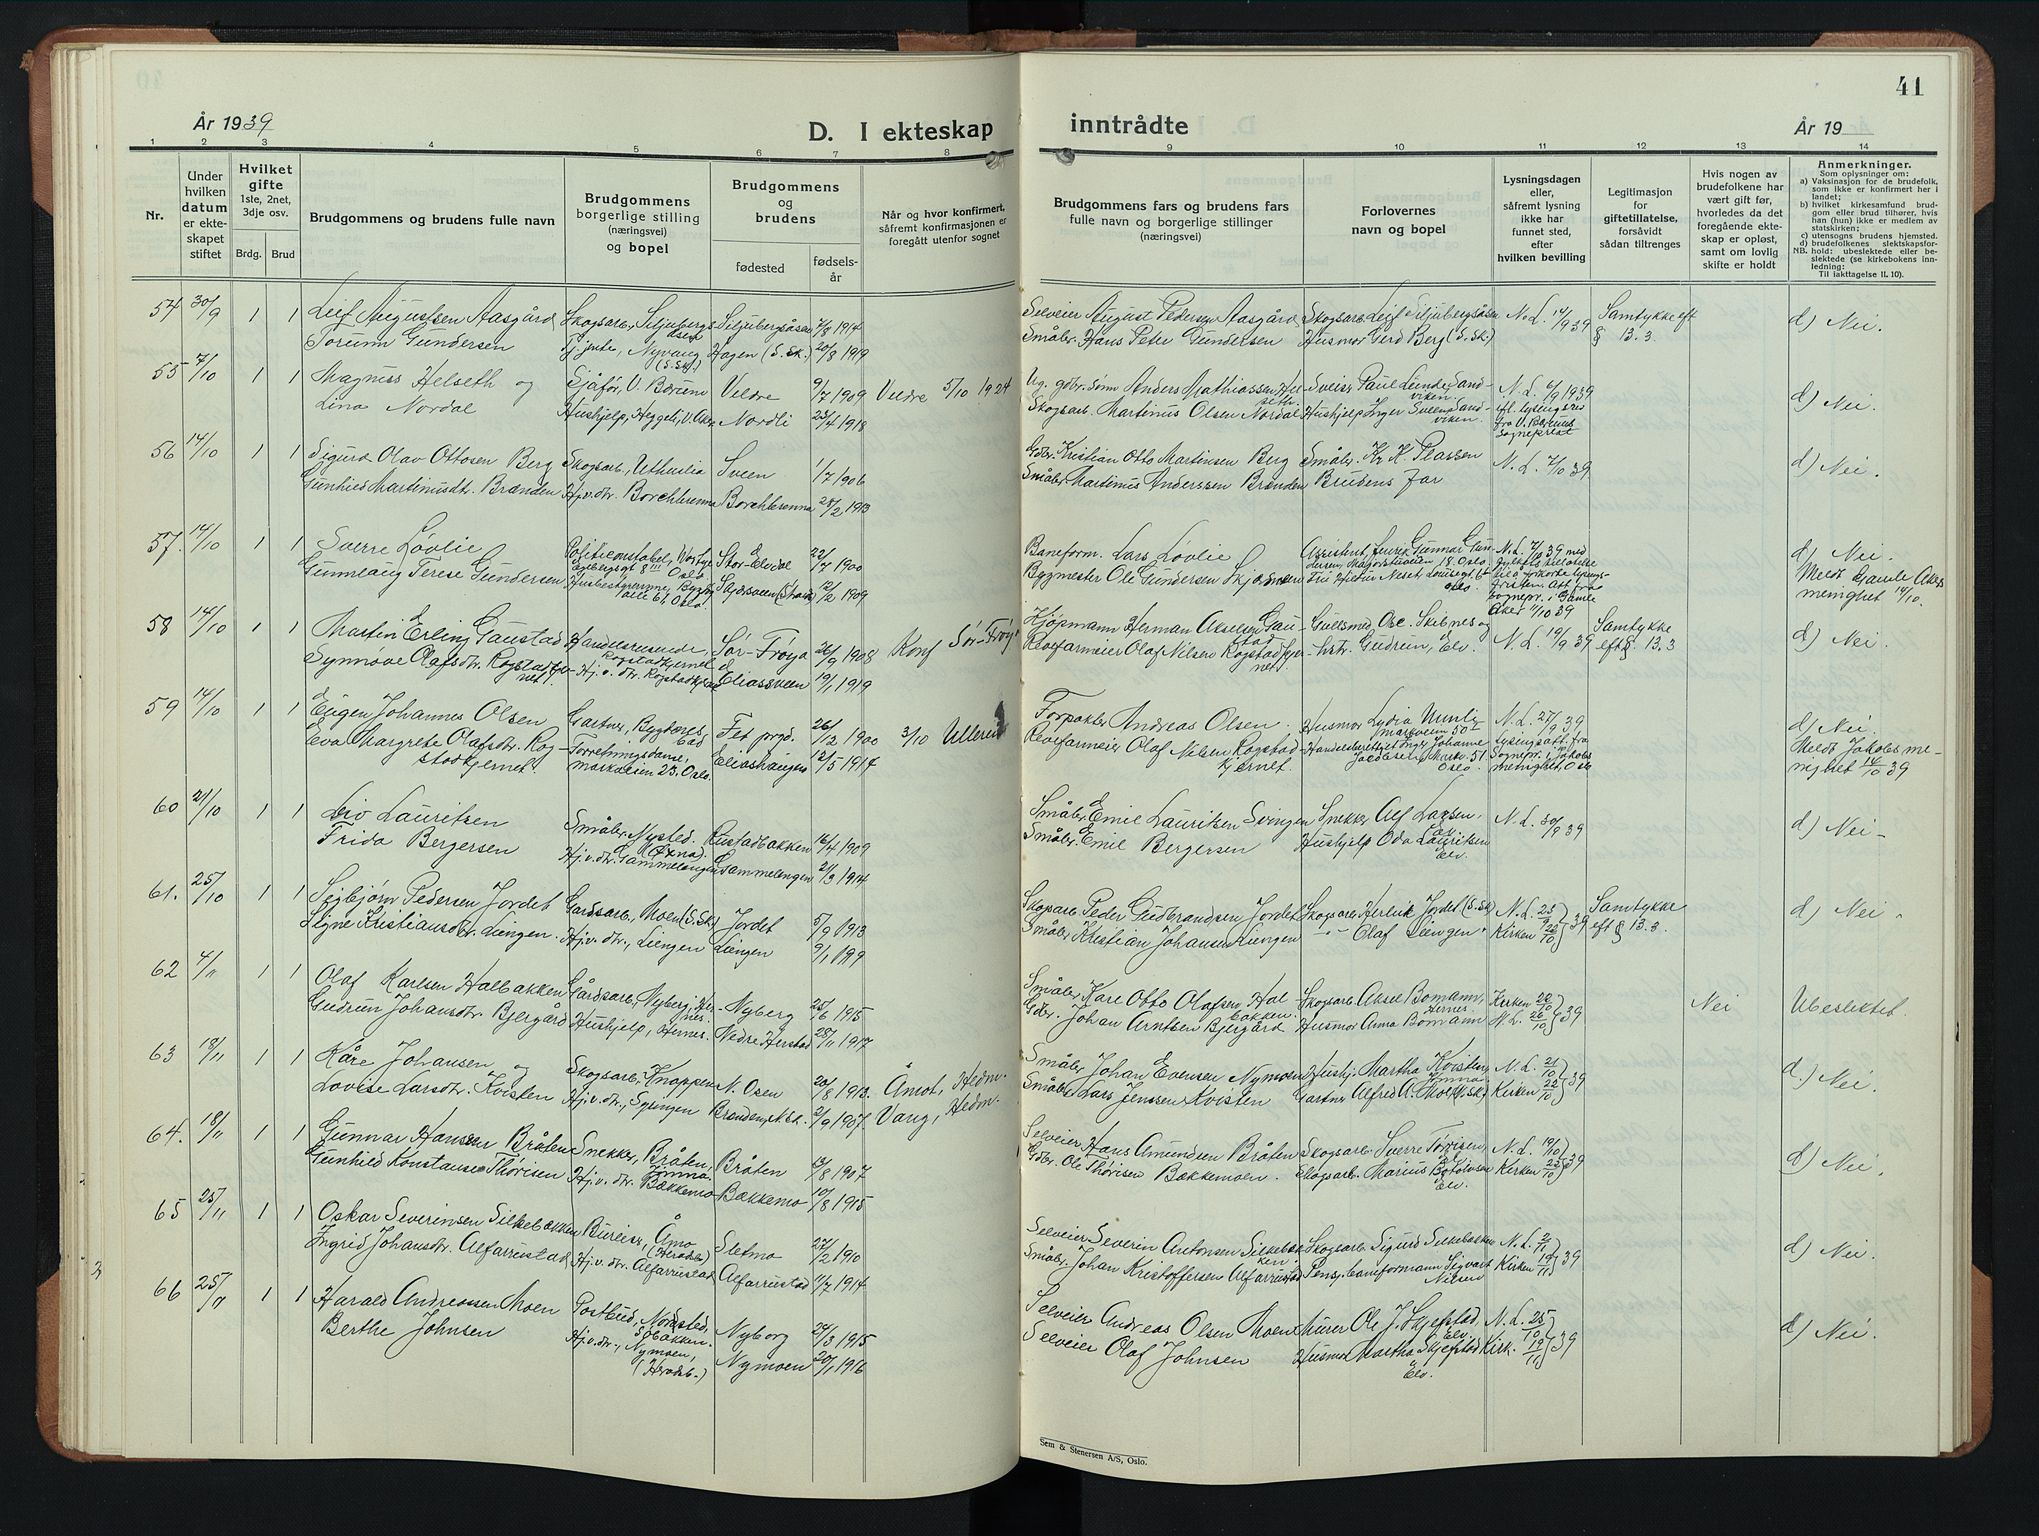 År 1939
D. I ekteskap
inntrådte
År 19
41
1 2 3 4 5 6 7 8 9 10 11 12 13 14
Nr.
Under hvilken datum er ekteskapet stiftet
Hvilket gifte 1ste, 2net, 3dje osv.
Brdg. Brud
Brudgommens og brudens fulle navn
Brudgommens borgerlige stilling (næringsvei) og bopel
Brudgommens og brudens
fødested
fødselsår
Når og hvor konfirmert, såfremt konfirmasjonen er foregått utenfor sognet
Brudgommens fars og brudens fars fulle navn og borgerlige stillinger (næringsvei)
Forlovernes navn og bopel
Lysningsdagen eller, såfremt lysning ikke har funnet sted, efter hvilken bevilling
Legitimasjon for giftetillatelse, forsåvidt sådan tiltrenges
Hvis nogen av brudefolkene har vært gift før, hvorledes da det foregående ekteskap er opløst, samt om lovlig skifte er holdt
Anmerkninger.
Som oplysninger om:
a) Vaksinasjon for de brudefolk, som ikke er konfirmert her i landet;
b) hvilket kirkesamfund brudgom eller brud tilhører, hvis han (hun) ikke er medlem av statskirken;
c) utensogns brudens hjemsted.
d) brudefolkenes slektskapsforhold: ubeslektede eller beslektede (se kirkebokens innledning:
NB.
Til iakttagelse II. 10).
54 30/9 1 1 Leif Augustsen Aasgård Skogsarb., Siljubergsåsen Siljubergsåsen 7/8 1914
Torunn Gundersen Tjente, Nyvang (S.Sk.) Hagen (S.Sk.) 20/8 1919
Selveier August Pedersen Aasgård Skogsarb. Leif Siljubergsåsen N.L. 14/9 39 Samtykke eft § 13.3 d) Nei.
Småbr. Hans Peter Gundersen Husmor Gerd Berg (S.Sk.)
55 7/10 1 1 Magnus Helseth og Sjåfør, V. Bærum Veldre 9/7 1909 Veldre 5/10 1924
Lina Nordal Hushjelp, Heggeli, V. Aker Nordli 23/4 1918
Ug. gdbr. sønn Anders Mathiassen Helseth Sveiser Paul Linde, Sandviken N.L. 6/9 1939 d) Nei.
Skogsarb. Martinus Olsen Nordal Hushjelp Inger Sveen, Sandviken
56 14/10 1 1 Sigurd Olav Ottosen Berg Skogsarb., Uthuslia Sveen 1/7 1906
Gunhild Martinusdt. Brænden Hj.v.dtr. Borchbrenna Borchbrenna 28/2 1913
Gdbr. Kristian Otto Martinsen Berg Småbr. Kr. K. Plassen N.L. 7/10 39 d) Nei.
Småbr. Martinus Anderssen Brænden Brudens far
57. 14/10 1 1 Sverre Løvlie Politikonstabel, Stor-Elvdal 22/7 1900
Gunnlaug Terese Gundersen Husbestyrerinne, 12/2 1909
Baneform. Lars Løvlie Assistent Henrik Gunnar Gundersen, N.L. 7/10 39 med d) Nei.
Bygmester Ole Gundersen Skjærsveen Oslo. Aker 11/10 39 Meldt Gamle Akers menighet 14/10.
58 14/10 1 1 Martin Erling Gaustad Handelsreisende, Rogstadkjernet Sør-Frøya 26/9 1908 Konf Sør-Frøya
Synnøve Olafsdtr. Rogstadkjernet Hj.v.dtr. Rogstadkjernet Eliassveen 19/1 1919
Kjøpmann Herman Akselsen Gaustad Gullsmed Osc. Skibnes og N.L. 19/9 39 Samtykke eft §. 13.3 d) Nei.
Revefarmeier Olaf Nilsen Rogstadkjernet hstr. Gudrun, Elv.
59 14/10 1 1 Eugen Johannes Olsen Gartner, Bygdønes bad Fet prgd. 26/2 1900 3/10 Ullern
Eva Margrete Olafsdtr. Rogstadkjernet. Forretningsdame, Markveien 23. Oslo. Eliashaugen 12/5 1914
Forpakter Andreas Olsen. Husmor Lydia N.L. 27/9 39 d) Nei.
Revefarmeier Olaf Nilsen Rogstadkjernet. Inger Johanne Jacobsen, Markv. 51 Oslo lysingsatt. fra Sognepr. i Jakobs menighet, Oslo Meldt Jakobs menighet 14/10 39
60 21/10 1 1 Liv Lauritsen Småbr., Nysted. Rustadbakken 16/4 1909
Frida Bergersen Hj.v.dtr. Gammelengen Gammelengen 21/3 1914
Småbr. Emil Lauritsen Svingen Snekker Alf Larsen. N.L. 30/9 39 d) Nei-
Småbr. Emil Bergersen Hushjelp Oda Lauritsen Elv.
61. 25/10 1 1 Sigbjørn Pedersen Jordet Gårdsarb., Moen (S.Sk) Jordet 5/9 1913
Signe Kristiansdtr. Liengen. Hj.v.dtr., Liengen Liengen 9/1
Skogsarb Peder Gudbrandsen Jordet Skogsarb. Herleik Jordet (S.Sk) N.L. 23/9 Samtykke eft § 13.3. d) Nei.
Småbr. Kristian Johansen Liengen - " - Olaf Liengen " Kirken 22/10 39
62 4/11 1 1 Olaf Karlsen Halbakken Gårdsarb., Nyberg, Hernes. Nyberg 25/6 1915
Gudrun Johansdtr. Bjergård Hushjelp, Hernes. Nedre Herstad 28/11 1917
Småbr. Kare Otto Olafsen Halbakken. Skogsarb. Aksel Bomann, Hernes Kirken 22/10 Nei Ubeslektet.
Gdbr. Johan Arntsen Bjergård Husmor Anna Bomann N.L. 26/10 39
63 18/11 1 1 Kåre Johansen og Skogsarb., Knappen N. Osen 20/8 1913. Åmot, Hedm.
Lovise Larsdtr. Kvisten Hj.v.dtr., Svingen Brænden, 2/9 1907. Vang, Hedm.
Småbr. Johan Evensen Nymoen Hushj. Martha Kvisten, N.L. 21/10 d.) Nei.
Småbr. Lars Jenssen Kvisten Gartner Alfred A. Kirken 22/10 39
64. 18/11 1 1 Gunnar Hanssen Bråten Snekker, Bråten, Bråten 13/8 1907
Gunhild Konstanse Thørisen Hj.v.dtr. Bakkemo Bakkemo 10/8 1915
Selveier Hans Amundsen Bråten Skogsarb. Sverre Tørisen, N.L. 19/10 d) Nei.
Gdbr. Ole Thørisen Bakkemoen. Skogsarb. Marius Elv. Kirken 22/10 39
65 25/11 1 1 Oskar Severinsen Silkebakken Bureiser, Åmo (Heradsb) Sletmo 27/2 1910
Ingrid Johansdtr. Alfarrustad Hj.v.dtr. Alfarrustad Alfarrustad 11/7 1914
Selveier Severin Antonsen Silkebakken. Skogsarb. Sigurd Silkebakken N.L. 2/11 d) Nei.
Småbr. Johan Kristoffersen Alfarrustad Pensj. baneformann Sigvart Nilsen Kirken 19/11 39
66 25/11 1 1 Harald Andreassen Moen Postbud, Nordsted, Nyborg 24/3 1915
Berthe Johnsen Hj.v.dtr., Nymoen, (Heradsb.) Nymoen 20/1 1916
Selveier Andreas Olsen Moen Murer Ole J. Skjefstad, Elv. N.L. 25/10 d) Nei.
Selveier Olaf Johnsen Husmor Martha Skjefstad Elv. Kirk. 19/11 39
Sem & Stenersen A/S, Oslo.